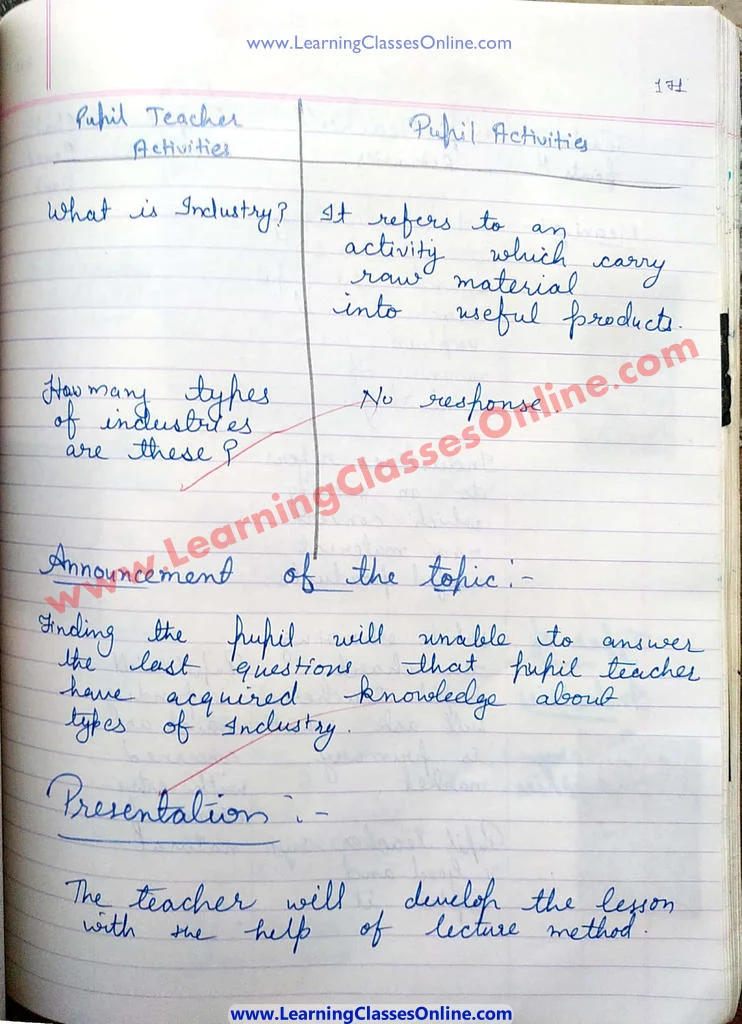 www.LearningClassesOnline.com
171
Pupil Teacher
Activities
Pupil Activities
What is Industry?
It refers to an
activity which carry
raw material
into useful products.
How many types
of industries
are these?
No response.
www.LearningClassesOnline.com
Announcement of the topic:-
Finding the pupil will unable to answer
the last questions that pupil teacher
have acquired knowledge about
types of Industry.
Presentation:-
The teacher will develop the lesson
with the help of lecture method.
www.LearningClassesOnline.com